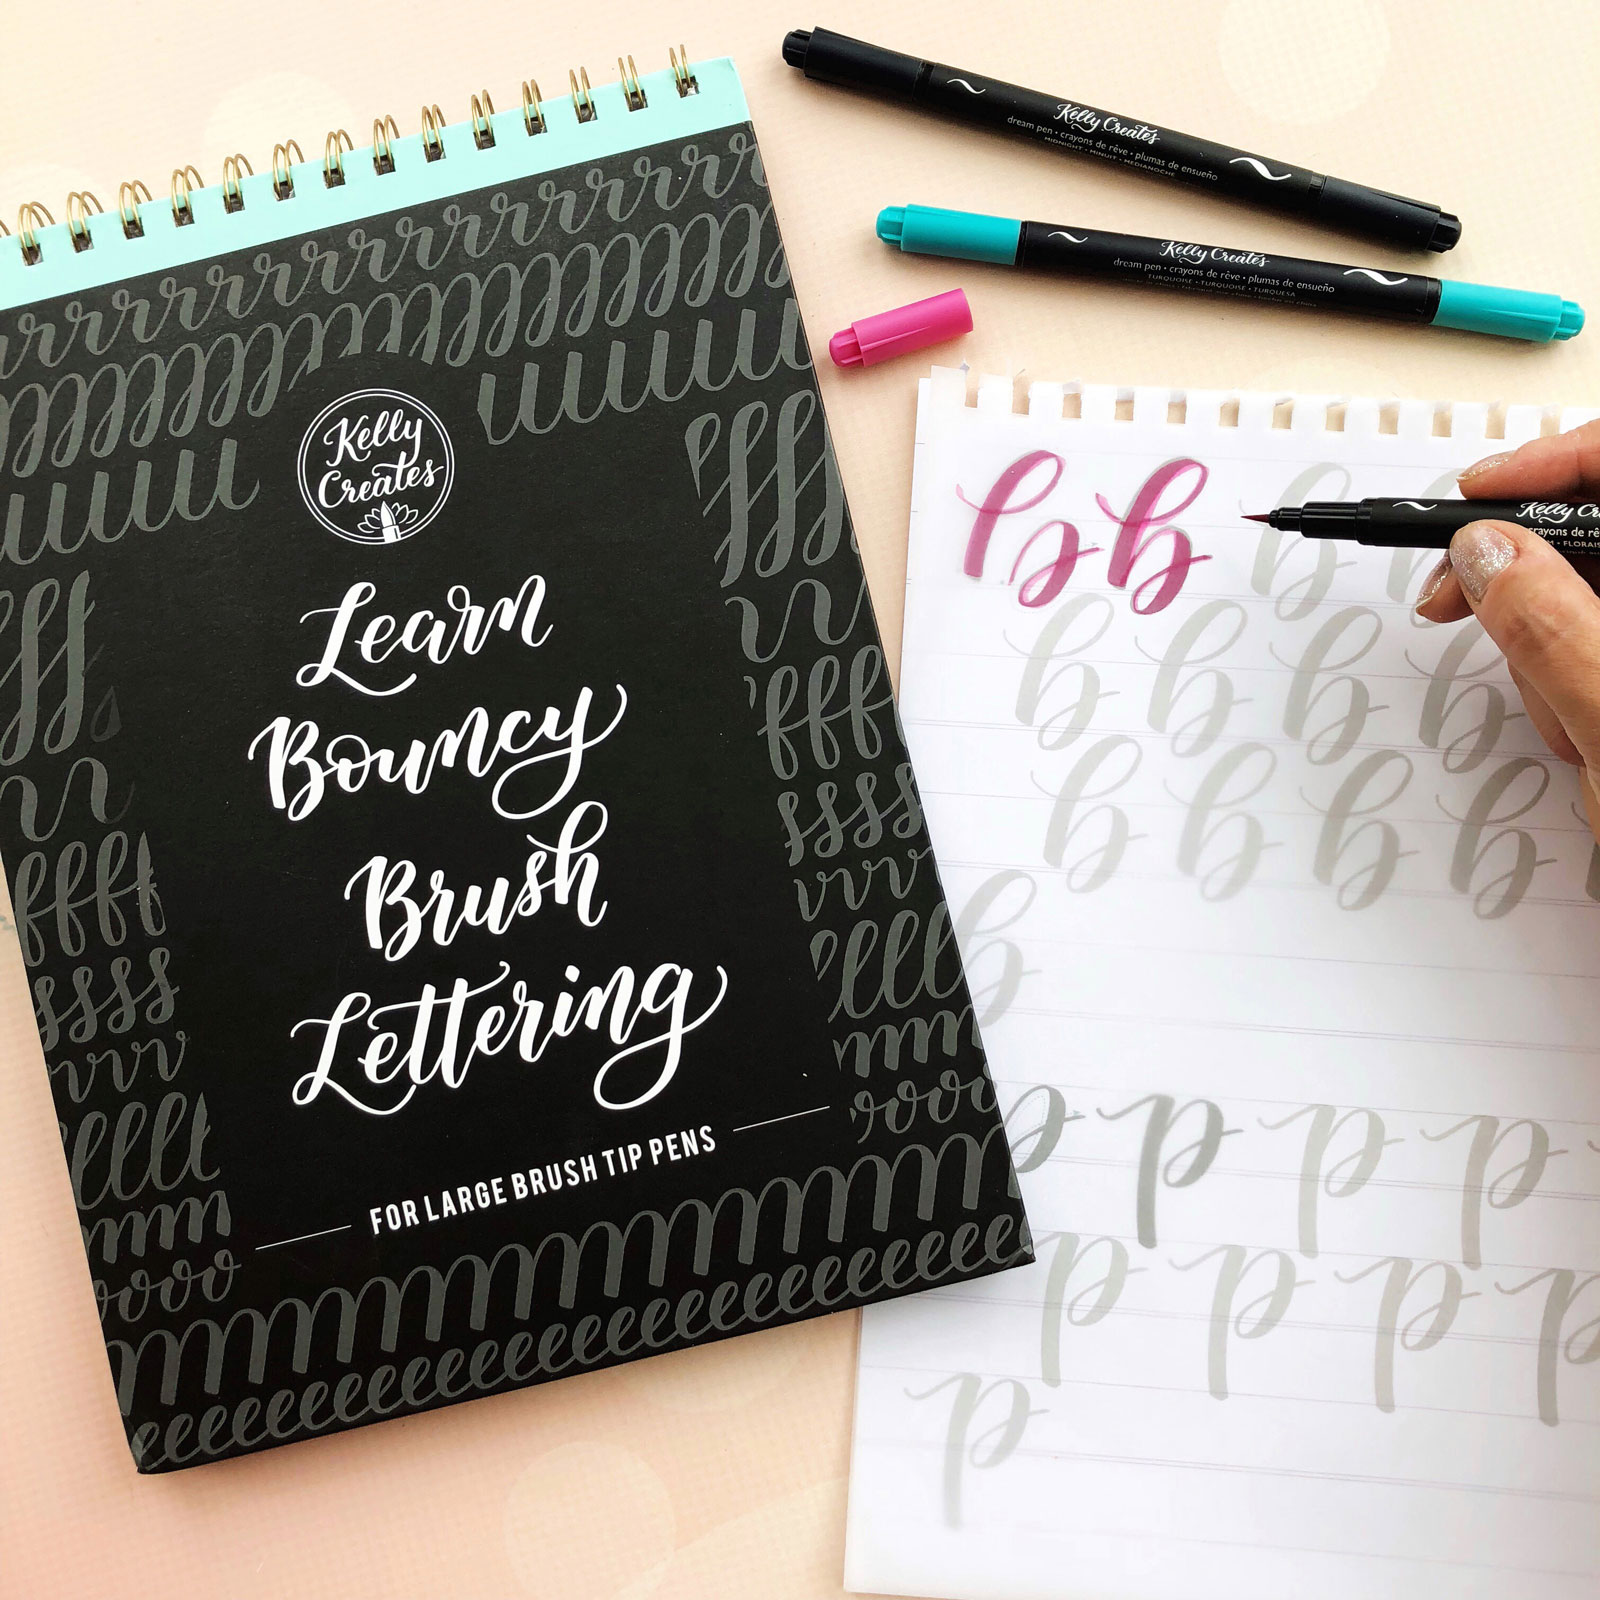 Kelly
Creates
Learn
Bouncy
Brush
Lettering
FOR LARGE BRUSH TIP PENS
Kelly Creates
dream pen • crayons de rêve • plumas de ensueño
MIDNIGHT • MINUIT • MEDIANOCHE
Kelly Creates
dream pen • crayons de rêve • plumas de ensueño
TURQUOISE • TURQUOISE • TURQUESA
b b b b
b b b b
b b b b
b
Kelly
crayons de
d d d d
d d d d
d